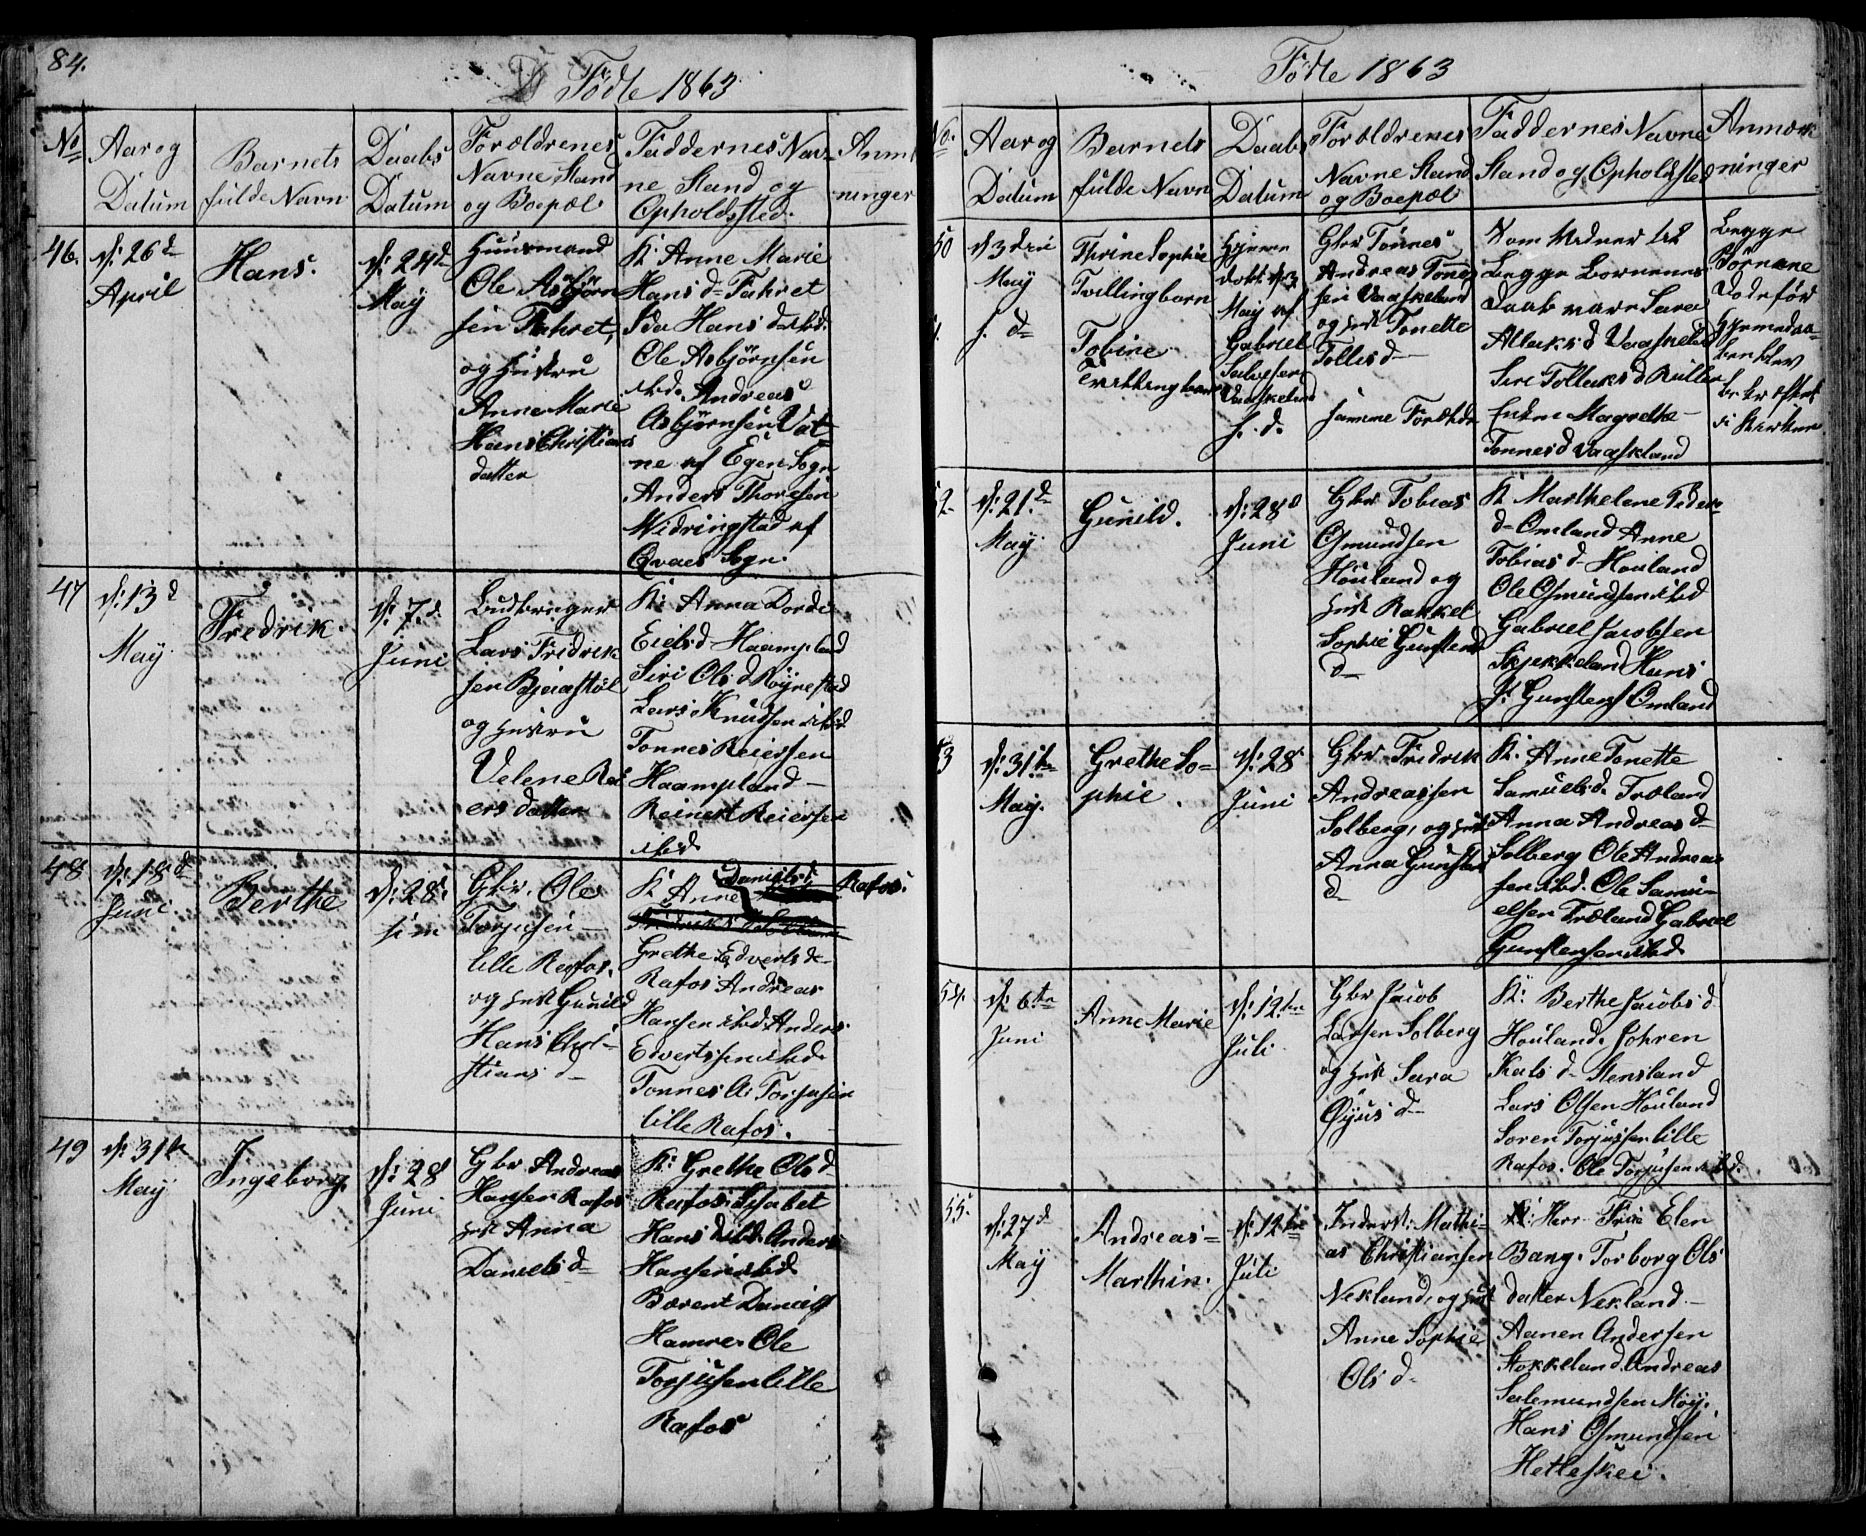 84.
Födte 1863
No
Aar og
Datum
Barnets
fulde Navn
Daabs
Datum
Forældrenes
Navne Stand
og Boepæl
Faddernes Nav-
ne Stand og
Opholdssted.
Anm
ninger
46.
d: 26d
April
Hans.
d: 24d
May
Huusmand
Ole Asbjörn
sen Fahret,
og Hustru
Anne Marie
Hans Christians
datter
K: Anne Marie
Hans d- Fahret
Ida Hans d ibd.
Ole Asbjörnsen
ibd. Andreas
Asbjörnsen Vat-
ne af Egen Sogn
Anders Thoresen
Widringstad af
Qvaes Sogn.
47
d: 13d
May
Fredrik.
d: 7.d
Juni
Budbringer
Lars Fridrik
sen
og Hustru
Velene Rei
ers datter
K: Anna Dorde
Eiels d Haampland
Siri Ols d Röynestad
Lars Knudsen ibd
Tonnes Reiersen
Haampland –
Reinert Reiersen
ibd
48
d: 18d
Juni
Berthe
d: 28d
Gbr. Ole
Torjusen –
lille Rafos.
og Hust Gunild
Hans Chri-
stians d-
K: Anne Daniels d Rafos.
Grethe Edverts d-
Rafos Andreas
Hansen ibd. Anders
Edvertssen ibd.
Tonnes A: Torjusen
lille Rafos.
49
d: 31te
May
Ingeborg.
d: 28d
Juni
Gbr Andreas
Hansen Rafos
Hst Anna
Daniels d-
K: Grethe Ols d
Rafos: Lisabet
Hans d ibd. Anders
Hansen ibd
Bærent Daniels
Hamre. Ole
Torjusen lille
Rafos
Födte 1863
No.
Aar og
Datum
Barnets
fulde Navn
Daabs
Datum
Forældrenes
Navne Stand
og Boepæl
Faddernes Navne
Stand og Opholdsted
Anmærk
ninger
50
d 3die
May
Thrine Sophie
Tvillingbarn
Hjeme
döbt d: 3
May af
Gabriel
Salvesen
Vaaskeland
Gbr Tönnes
Andreas Tönes
sen Vaaskeland
og Hust Tonette
Tolles d –
Som Vidner til
begge Börnenes
Daab vare Sara
Atlaks d Vaaskeland
Siri Tollaks d
Enken Magrethe –
Tonnes d Vaaskland
Begge
Börnene
döde för
Hjemedaa-
ben blev
bekræftet
i Kirken
s. d-
Tobine
Tvillingbarn
s. d.
Samme Foræld
52
d: 21.d
May.
Gunild.
d: 28d
Juni
Gbr Tobias
Osmundsen
Houland og
Hust Rakkel
Sophie Gunstens
d-
K Marthelene Peder
d- Omland Anne
Tobias d- Houland
Ole Osmundsen ibd
Gabriel Jacobsen
Skjekkeland Hans
Gunstens Omland
53
d: 31te
May.
Grethe So-
phie.
d: 28
Juni
Gbr Fredrik
Andreassen
Solberg, og Hust
Anna Gunstens
d-
K: Anne Tonette
Samuels d. Træland
Anna Andreas d-
Solberg Ole Andreas
sen ibd. Ole Samu-
elsen Træland Gabriel
Gunstensen ibd.
54.
d: 6.te
Juni
Anne Marie
d: 12te
Juli
Gbr Jacob
Larsen Solberg
og Hust Sara
Öyus d-
K: Berthe Jacobs d
Houland. Johren
Kals d- Stensland
Lars Olsen Houland
Soren Torjussen lille
Rafos. Ole Torjusen ibd.
55.
d: 27d
May
Andreas-
Marthin.
d: 12te
Juli
Inderst: Mathi-
as Christiansen
Nekland, og Hust
Anne Sophie
Ols d-
K: Herr Frue Elen
Bang. Torborg Ols
datter Nekland –
Aanen Andersen
Stokkeland. Andreas
Salemundsen Möy.
Hans Osmundsen
Hetleskei.